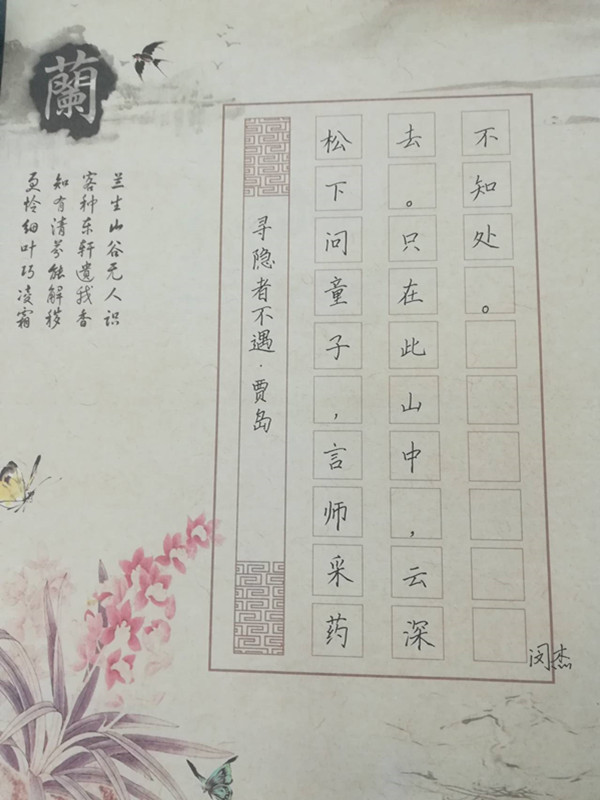 蘭
兰生山谷无人识
客种东轩遗我香
知有清芬能解秽
更怜细叶巧凌霜
寻隐者不遇·贾岛
松下问童子，言师采药
去。只在此山中，云深
不知处。
闵杰